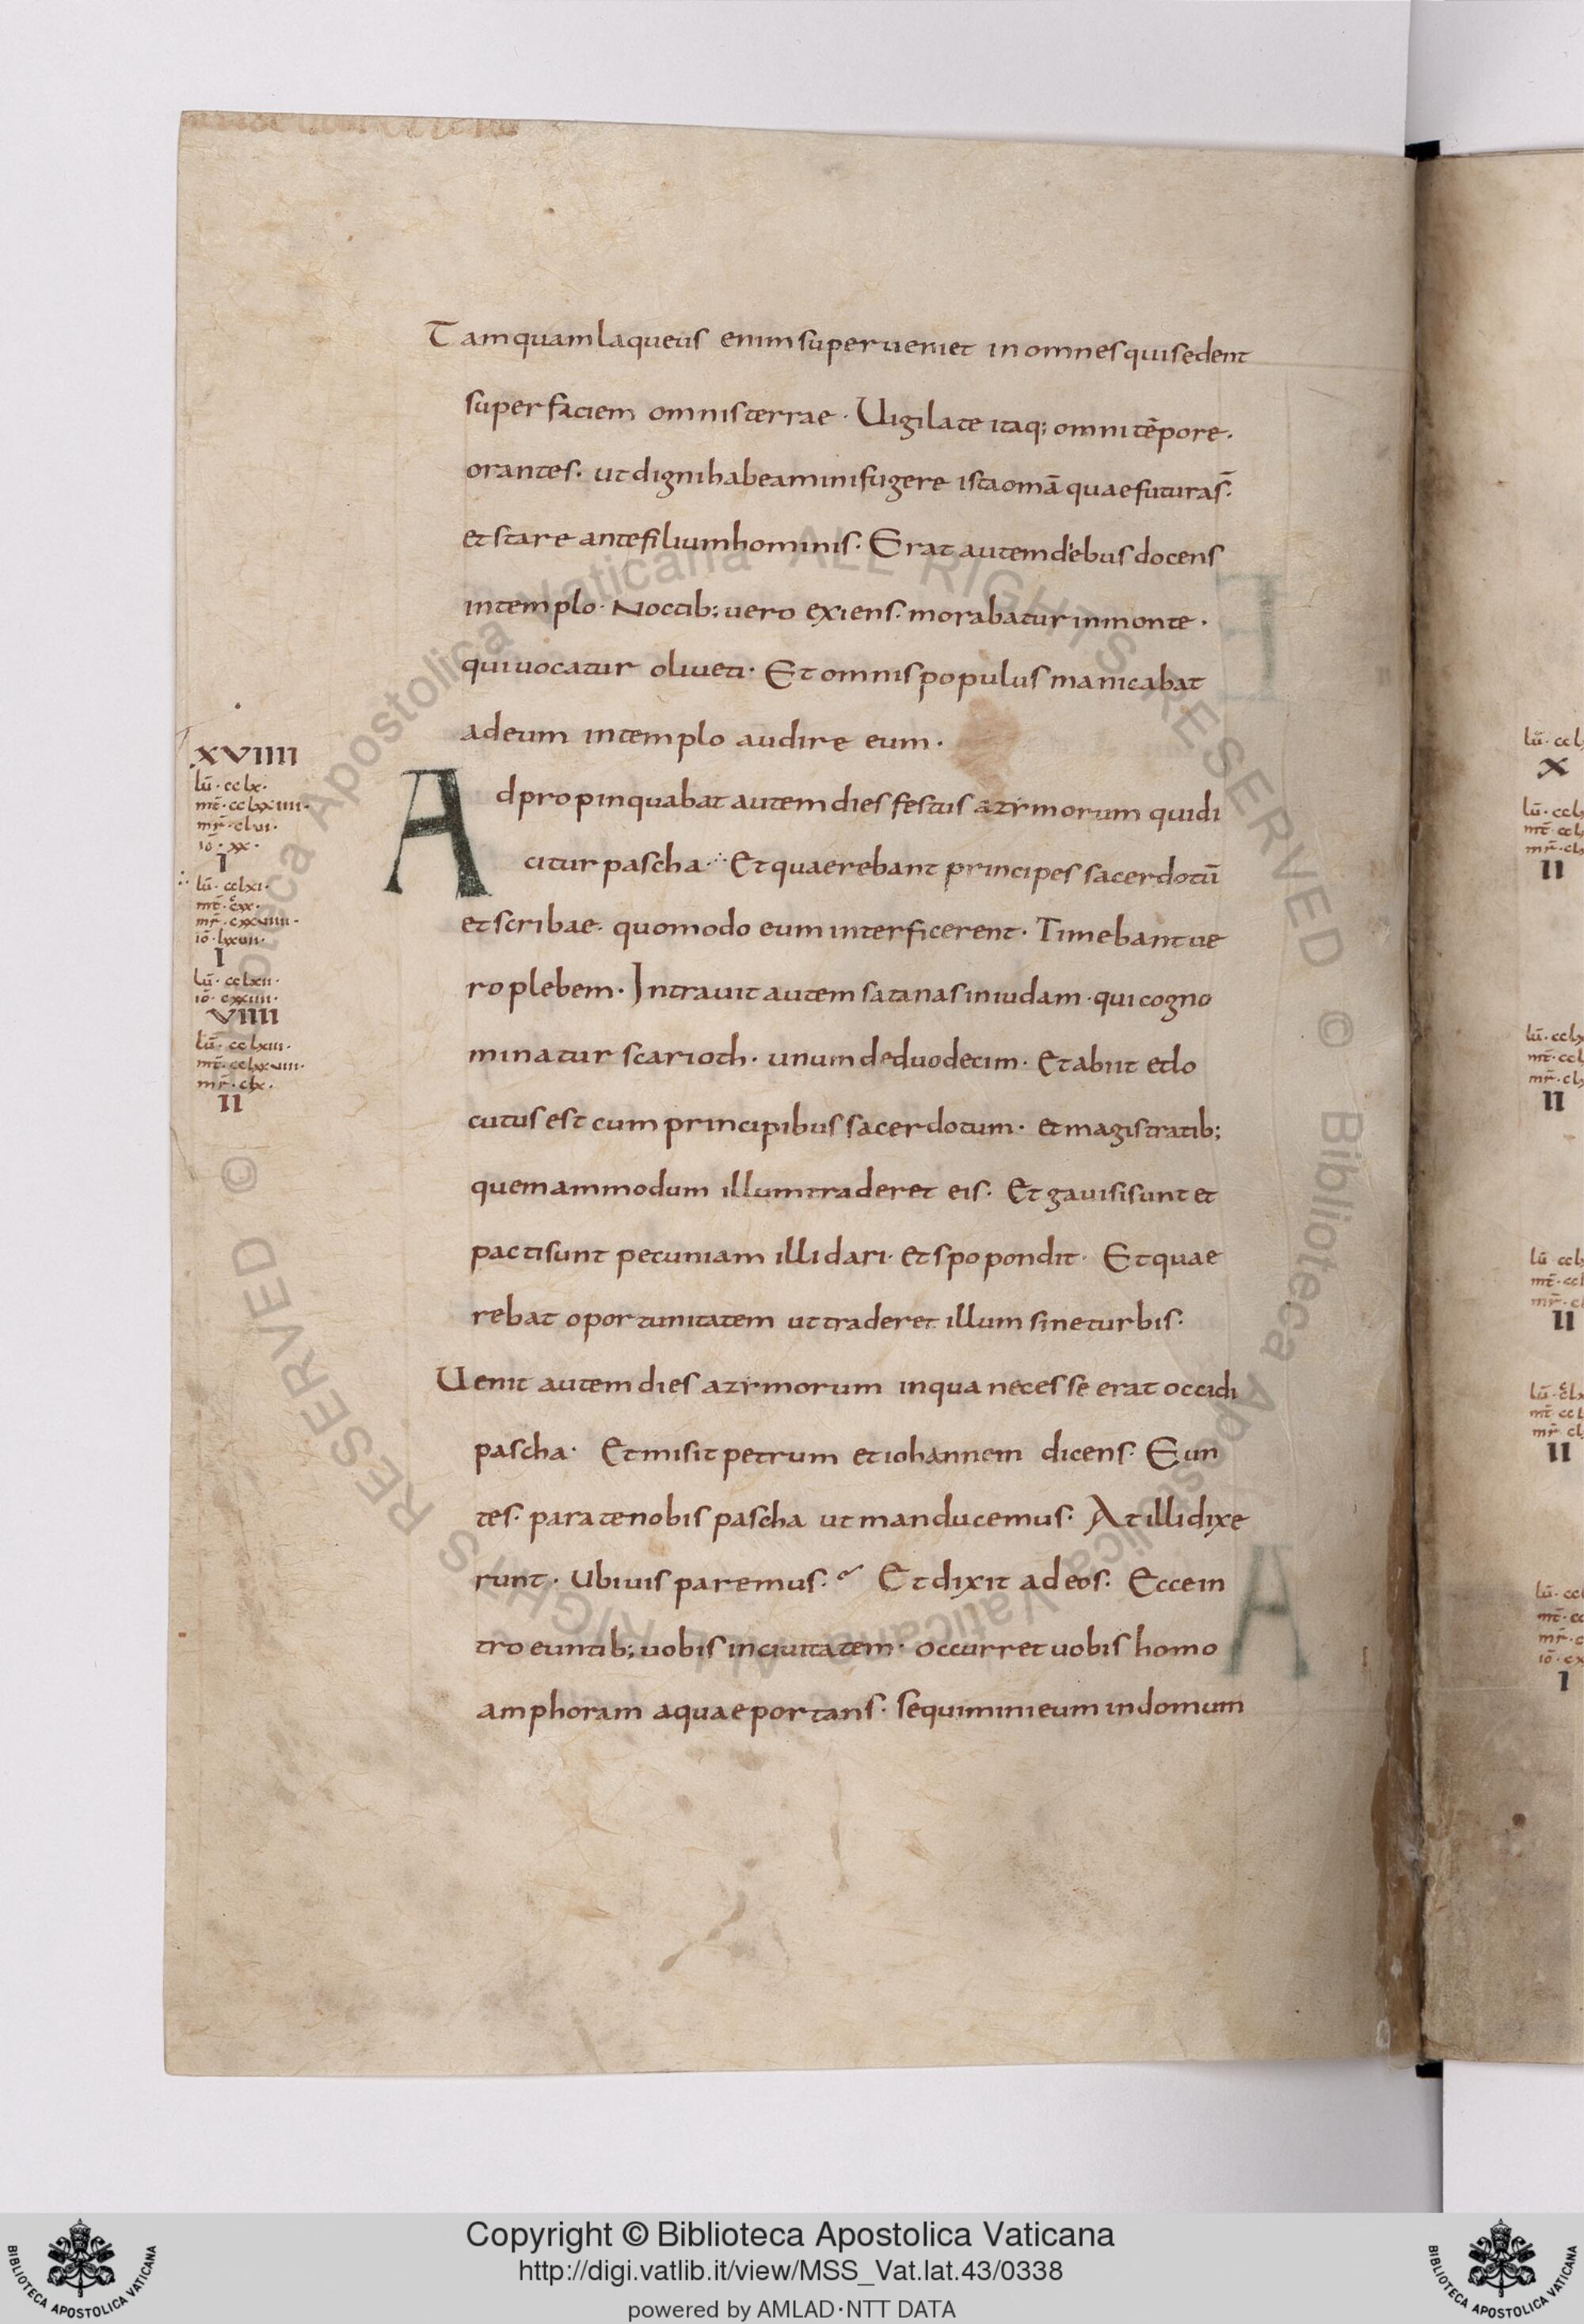 Tamquam laqueus enim superueniet in omnes qui sedent
super faciem omnis terrae · Uigilate itaq; omni tēpore ·
orantes · ut digni habeamini fugere ista om̄a quae futura s̄ ·
et stare ante filium hominis · Erat autem diebus docens
in templo · Noctib; uero exiens · morabatur in monte ·
qui uocatur oliueti · Et omnis populus manicabat
ad eum in templo audire eum ·
Adpropinquabat autem dies festus azimorum qui di
citur pascha ·:· Et quaerebant principes sacerdotū
et scribae · quomodo eum interficerent · Timebant ue
ro plebem · Intrauit autem satanas in iudam · qui cogno
minatur scarioth · unum de duodecim · Et abiit et lo
cutus est cum principibus sacerdotum · et magistratib;
quemammodum illum traderet eis · Et gauisi sunt et
pacti sunt pecuniam illi dari · et spopondit · Et quae
rebat oportunitatem ut traderet illum sine turbis ·
Uenit autem dies azimorum in qua necesse erat occidi
pascha · Et misit petrum et iohannem dicens · Eun
tes · parate nobis pascha ut manducemus · At illi dixe
runt · Ubi uis paremus · Et dixit ad eos · Ecce in
troeuntib; uobis in ciuitatem · occurret uobis homo
amphoram aquae portans · sequimini eum in domum
XVIIII
lū · cclx ·
mt̄ · cclxxiiii ·
mr̄ · clui ·
iō · xx ·
I
lū · cclxi ·
mr̄ · cxxuiiii ·
iō · lxxuii ·
I
lū · cclxii ·
iō · cxxiiii ·
VIIII
lū · cclxiii ·
mt̄ · cclxxuiii ·
mr̄ · clx ·
II
X
II
II
II
II
I
Copyright © Biblioteca Apostolica Vaticana
http://digi.vatlib.it/view/MSS_Vat.lat.43/0338
powered by AMLAD·NTT DATA
BIBLIOTECA APOSTOLICA VATICANA
BIBLIOTECA APOSTOLICA VATICANA
© Biblioteca Apostolica Vaticana ALL RIGHTS RESERVED © Biblioteca Apostolica Vaticana ALL RIGHTS RESERVED